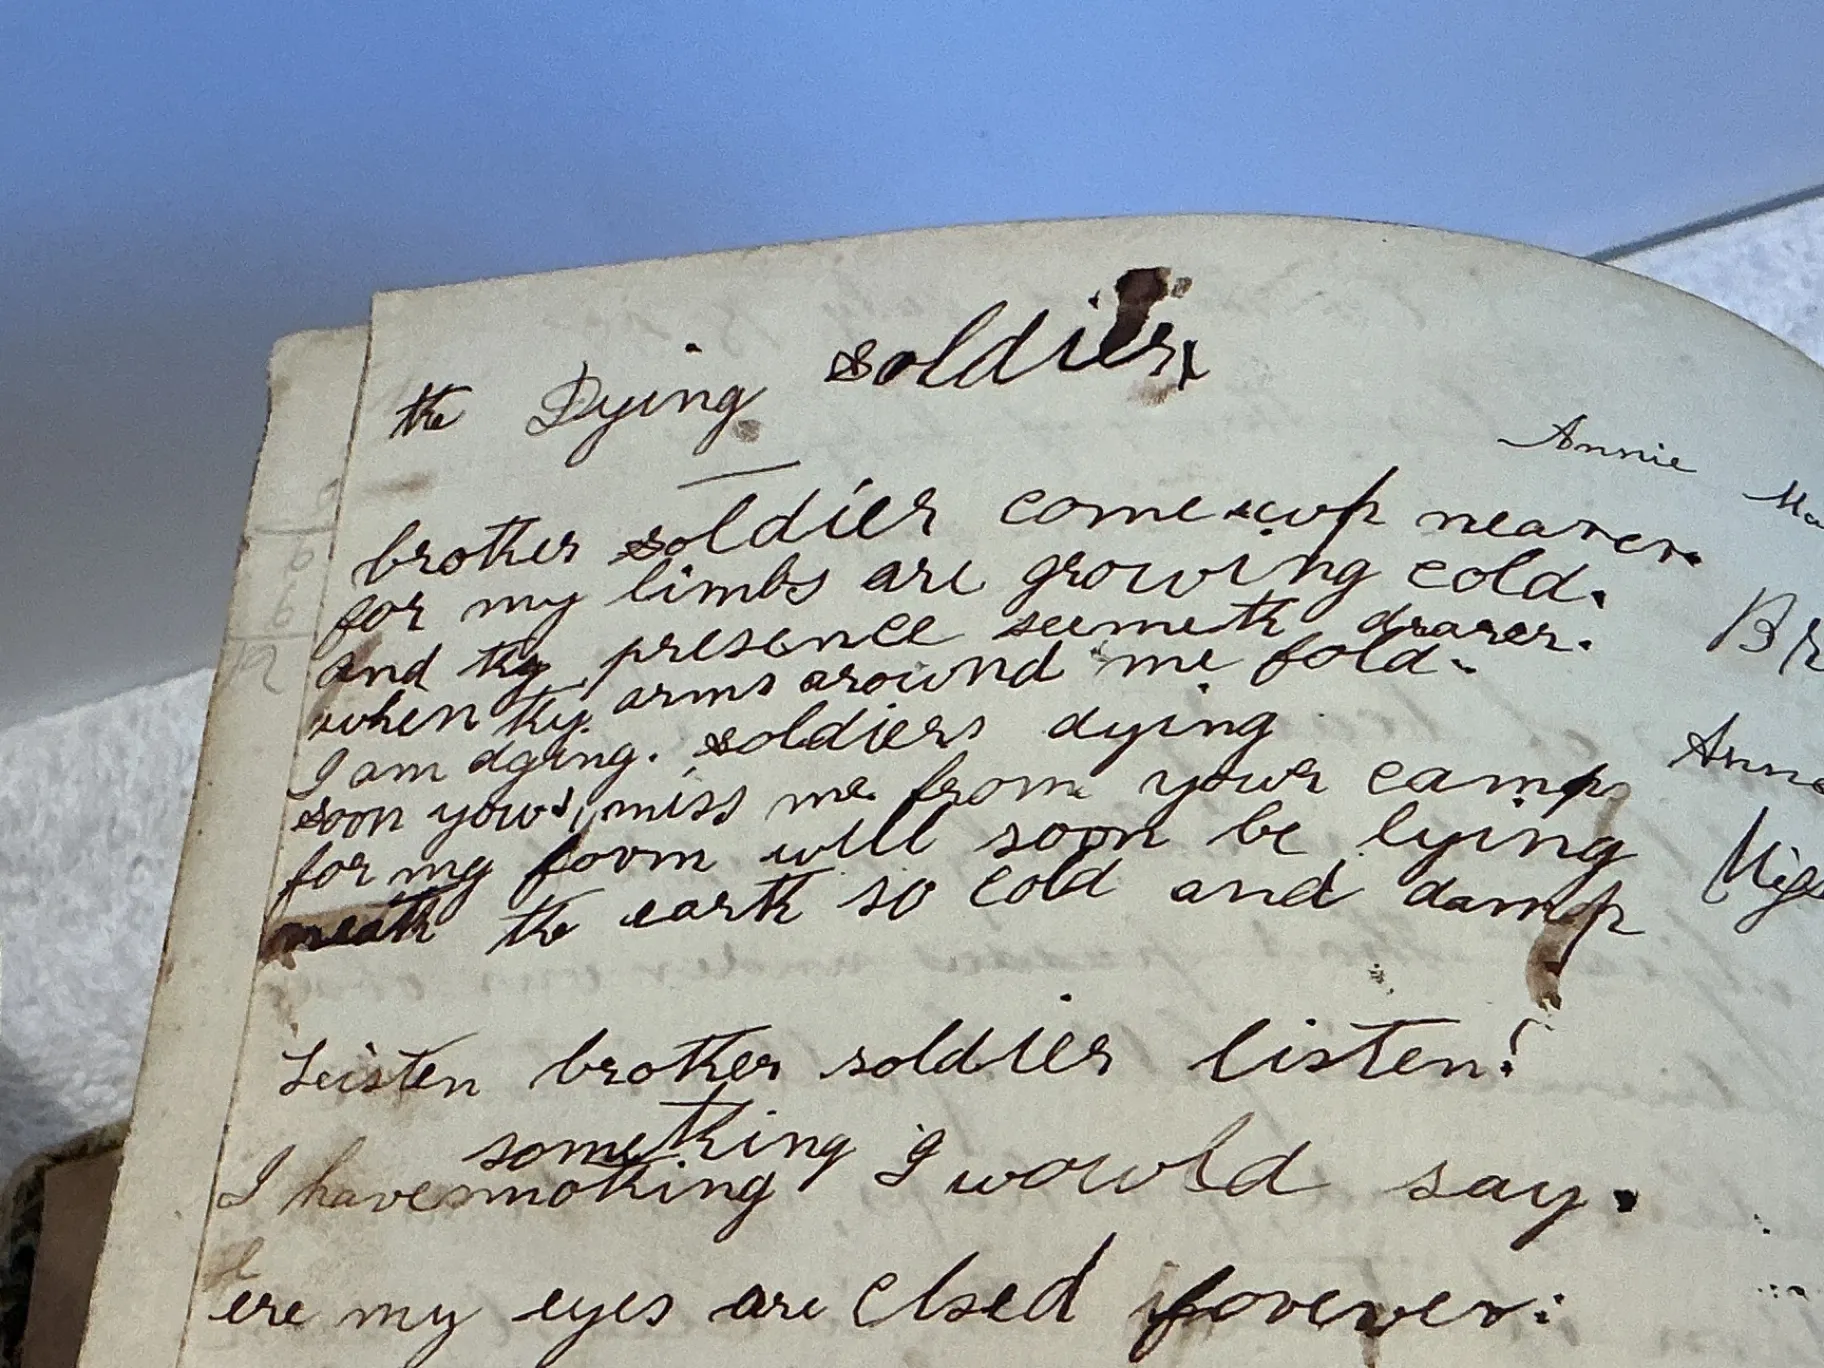 the Dying soldier
Annie
brother soldier come up nearer.
for my limbs are growing cold.
and thy presence seemeth drarer.
when thy arms around me fold.
I am dying. soldiers dying
soon you'l miss me from your camp
for my form will soon be lying
neath the earth so cold and damp
Leisten brother soldier listen!
something
I have nothing I would say.
ere my eyes are clsed forever: